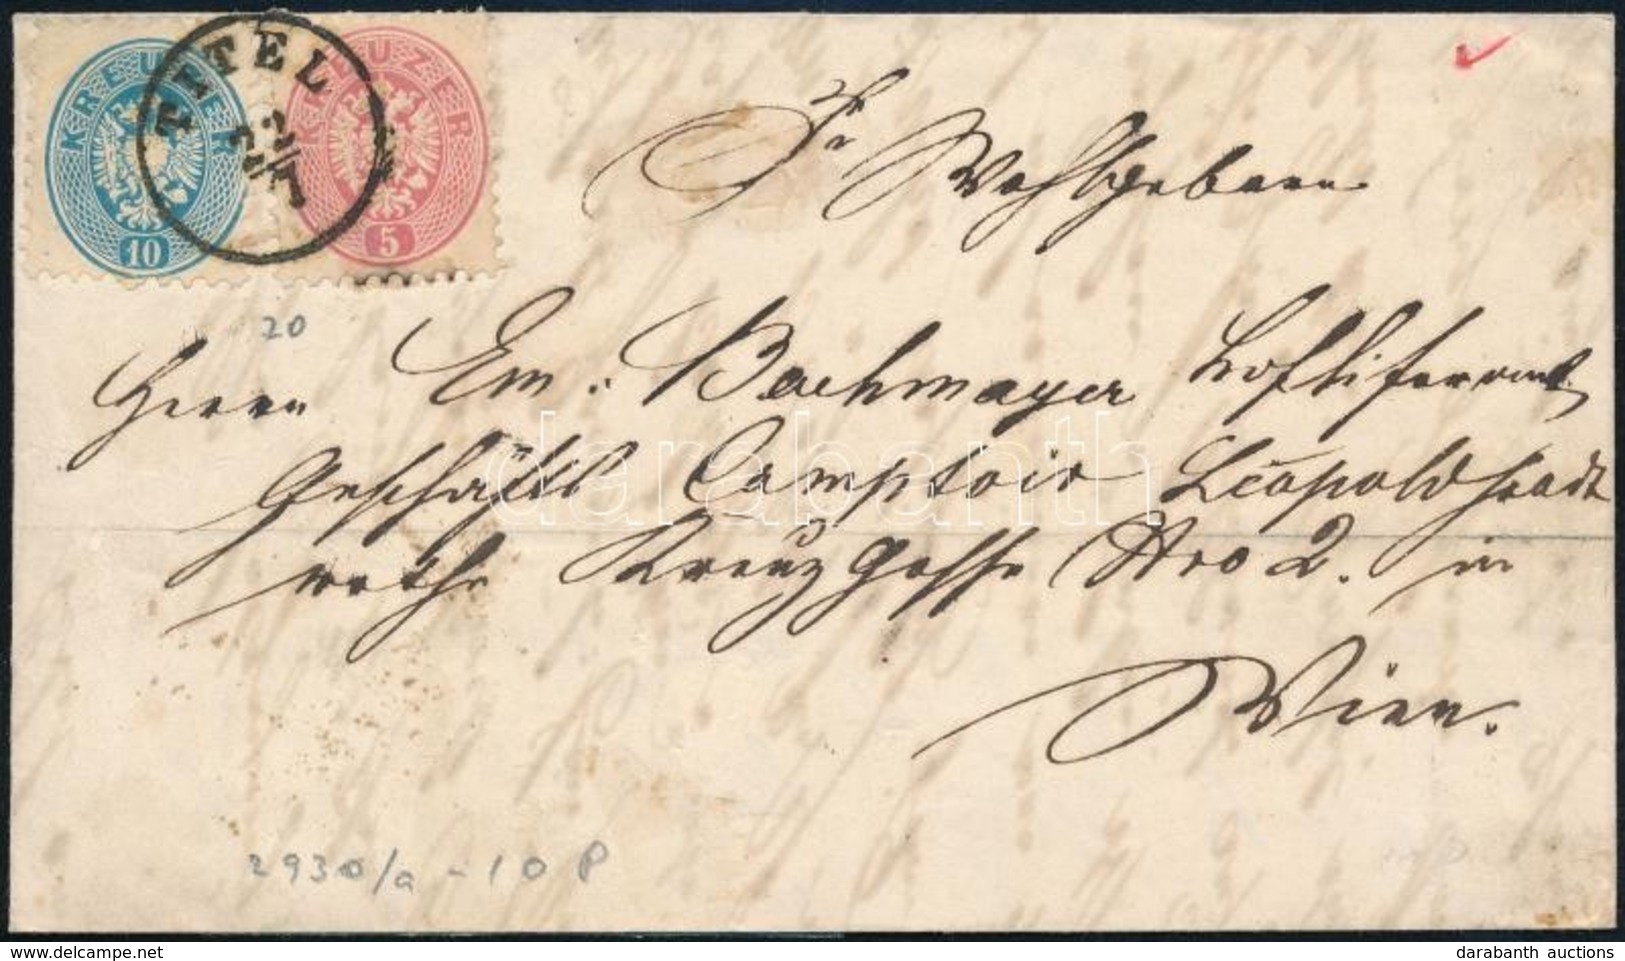 KREUZER 10
KREUZER 5
TITEL
22/7
Sr Wohlgeboren
20
Herrn Em. Bachmayer Hofliferant
Geschäfts Comptoir Leopoldstadt
rothe Kreuz Gasse Nro 2. in
Wien.
darabanth
2930/a - 10 P
darabanth auctions